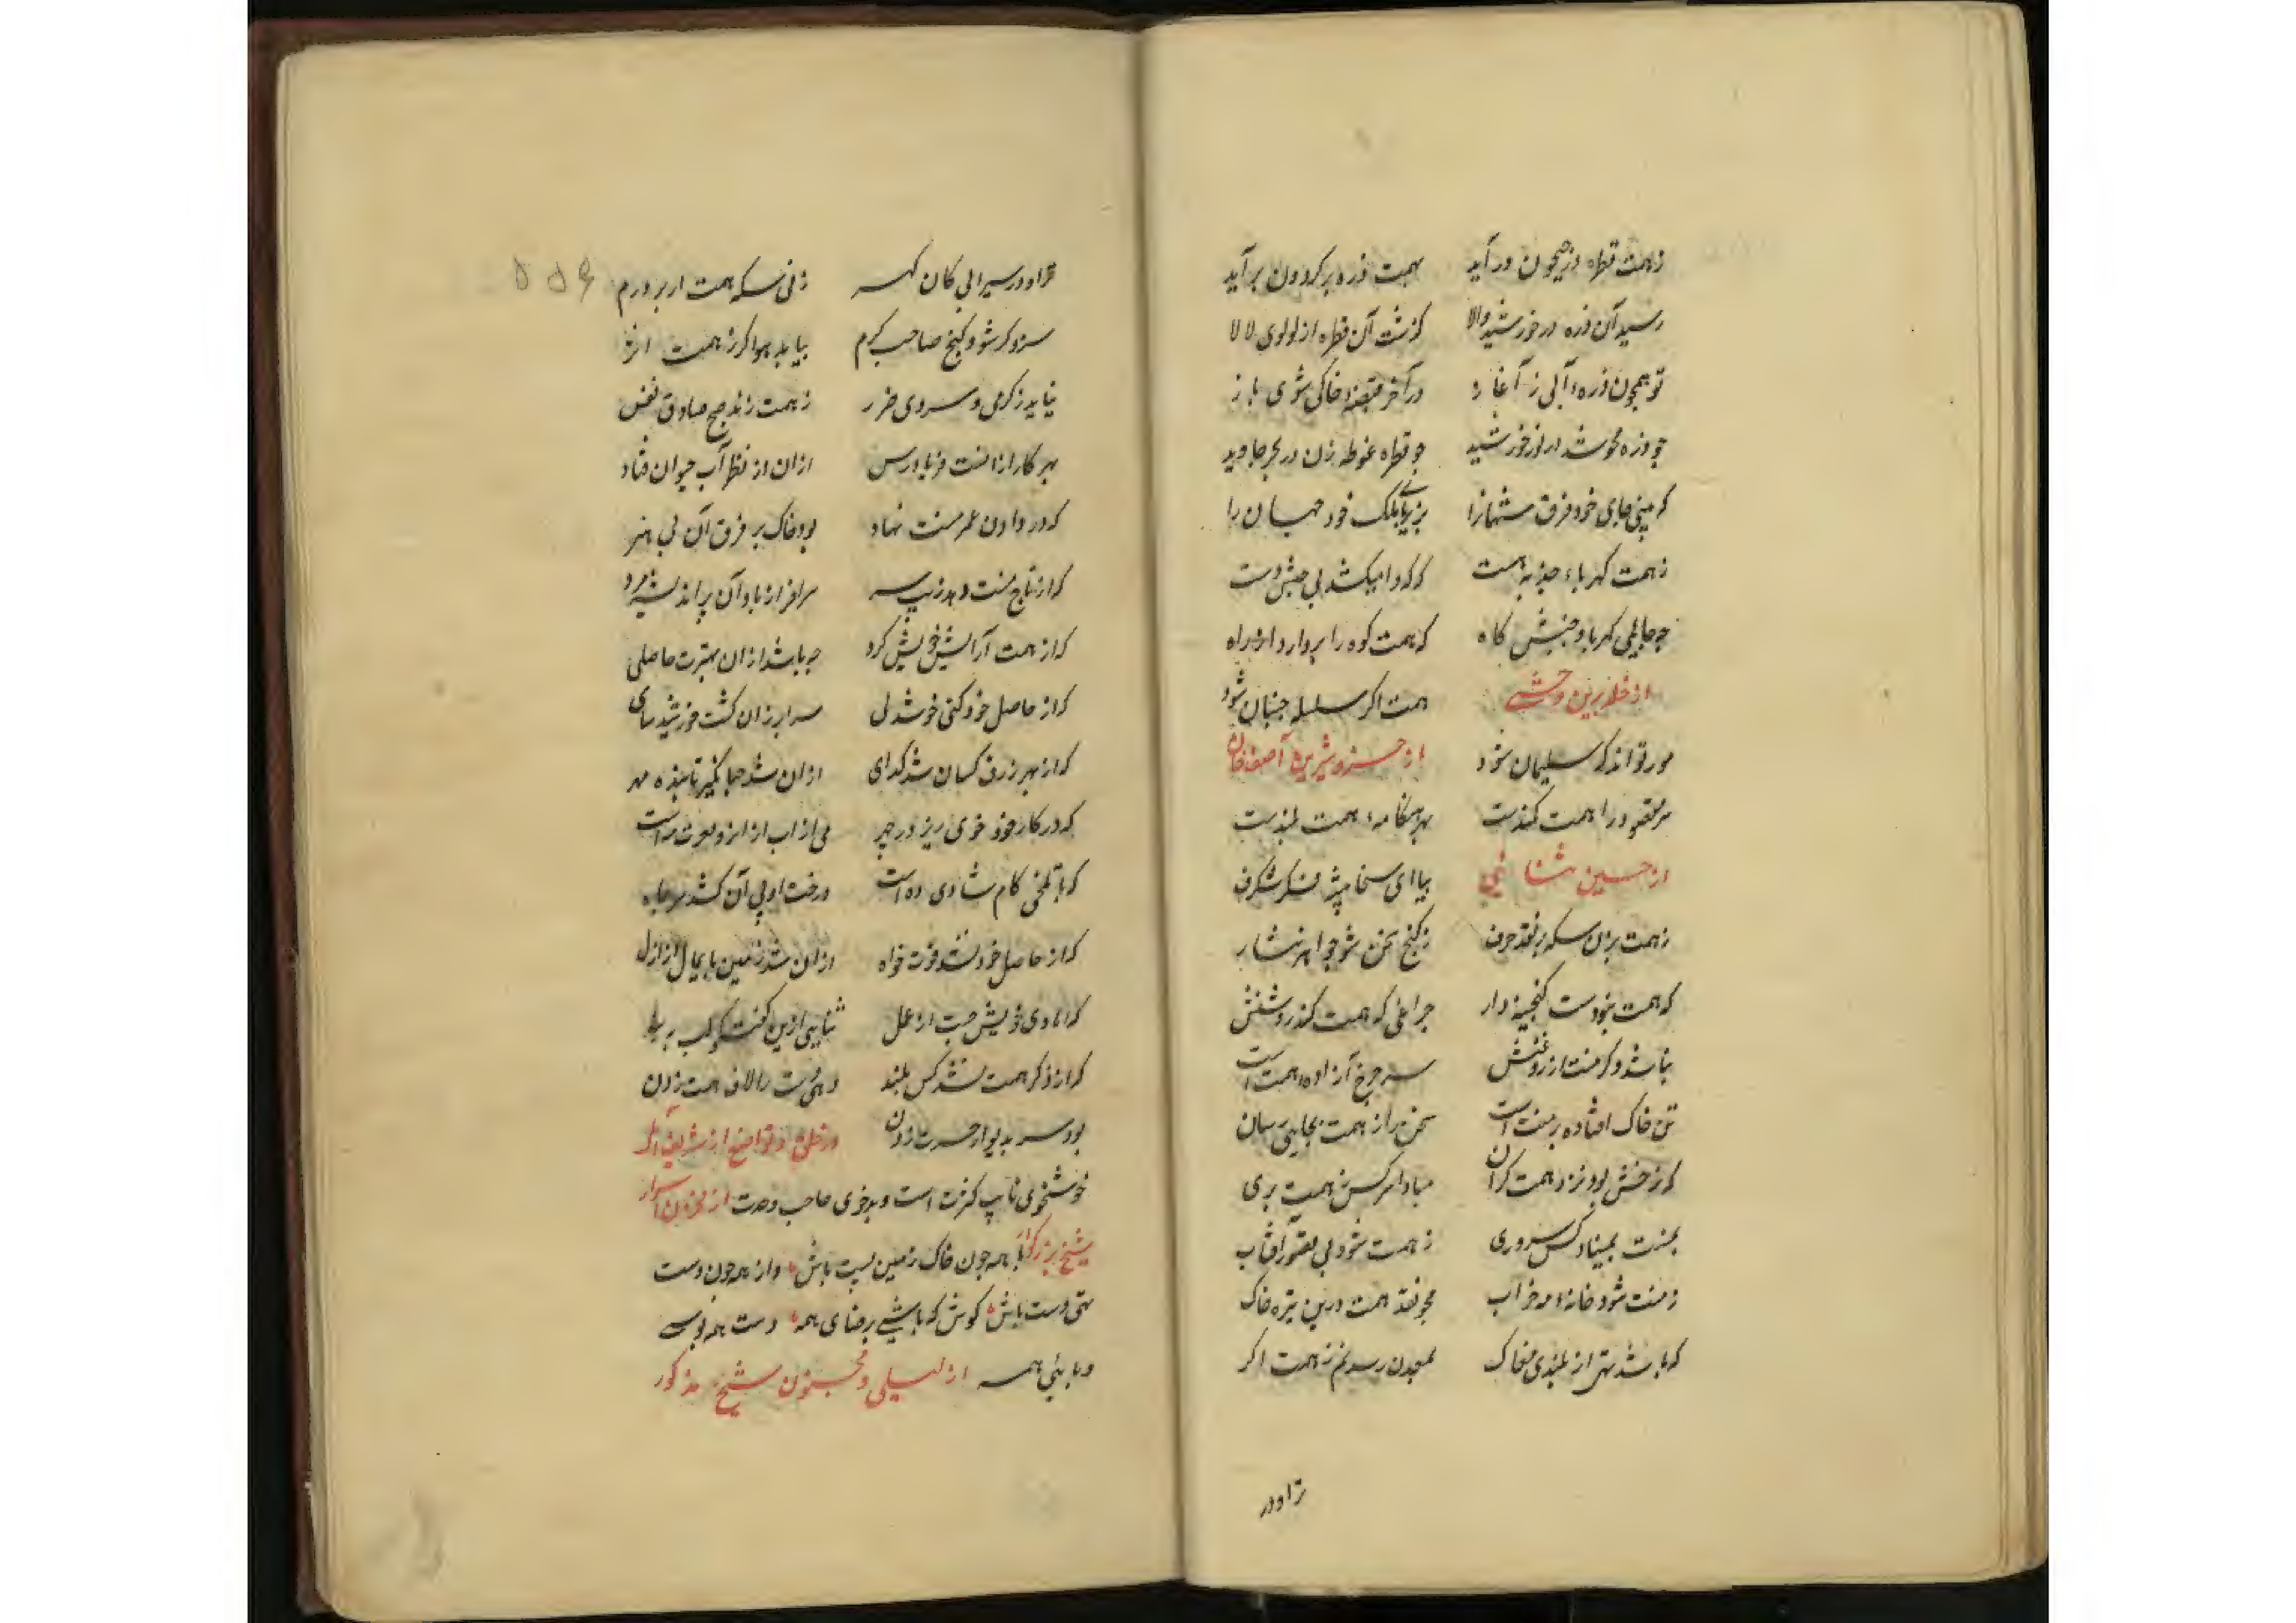 زهمت قطره در جیحون درآید بهمت ذره بر کردون برآید
رسید آن ذره در خورشید والا کذشت آن قطره از لولوی لالا
تو همچون ذره آبی ز آغاز در آخر قبضه خاکی شوی باز
چو ذره محو شد در نور خورشید چو قطره غوطه زن در بحر جاوید
که بینی جای خود فرق
زهمت کهرباء جذبه هست که که را میکشد بی جنبش دست
چه جای کهربا و جنبش کاه که همت کوه را بردارد از راه
از خلد برین وحشی همت اکر سلسله جنبان شود
مور تواند که سلیمان شود از خسرو شیرین آصف خان
سر مقصود را همت کمندست بهر هنکامه همت بلندست
از حسین ثنائی بیا ای سخا پیشه
زهمت بزن سکه بر نقد حرف ز کنج سخن شو جواهر نثار
که همت بخودست کنجینه دار چراغی که همت کند روشنش
نباشد دکر منت از روغنش سر چرخ آزاده همت است
تن خاک افتاده منت است سخن را ز همت بجایی رسان
که نرخش بود نزد همت کران مبادا سر کس ز همت بری
بمنت مبیناد کس سروری ز همت شود آفتاب
ز منت شود خانه مه خراب مجو نقد همت درین تیره خاک
که باشد تهی از بلندی مغاک بمعدن رسد نم ز همت اکر
تراود
تراود ز سیرابی کان کهر زنی سکه همت ار بر درم
سزد کر شود کنج صاحب کرم بیابد هوا کر ز همت اثر
نیابد ز کرمی و سردی ضرر ز همت زند صبح صادق نفس
بهر کار از آنست فریادرس از آن از نظر آب حیوان فتاد
که در دادن عمر منت نهاد بود خاک بر فرق آن بی هنر
که از تاج منت دهد زیب سر سرافراز باد آن
که از همت آرایش خویش کرد چه باشد از آن بهترت حاصلی
که از حاصل خود کنی خوشدلی
که از بهر زر کسان شد کدای از آن شد جهانکیر تابنده مهر
که در کار خود خوی ریزد ز چهر می از آب از آنرو بعزت مه است
که با تلخی کام شادی ده است درخت از پی آن کشد سر بماه
که از حاصل خود نشد قوت خواه وزان شد زمین پایمال از ازل
که آبادی خویش جست از عمل ثنایی ازین کفت و کو لب ببند
که از ذکر همت نشد کس بلند
بود سر بدیوار حسرت زدن در خلق و تواضع از شریف املی
خوشخوی نایب کثرت است و بدخوی صاحب وحدت از مخزن اسرار
شیخ بزرکوار با همه چون خاک زمین پست باش واز همه چون دست
تهی دست باش کوش که باشی برضای همه دست همه بوسی
و پای همه از لیلی و مجنون شیخ مذکور